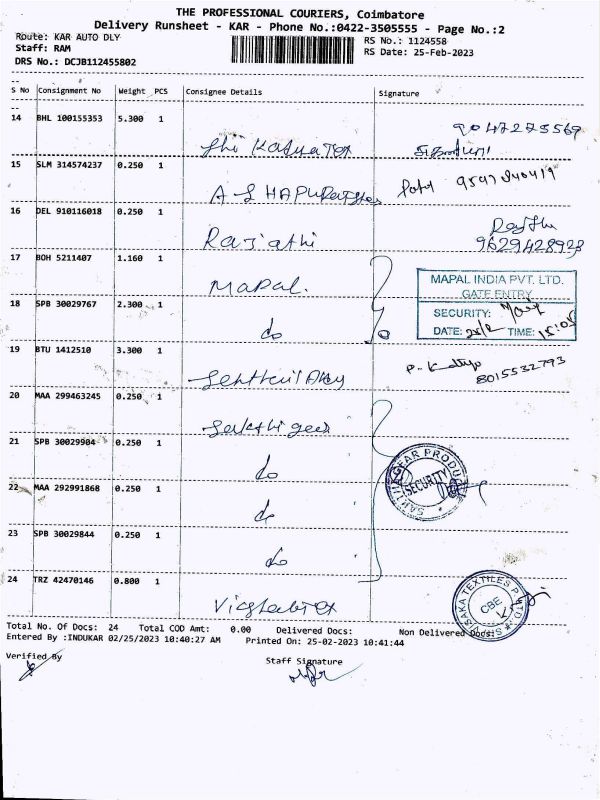 THE PROFESSIONAL COURIERS, Coimbatore
Delivery Runsheet - KAR - Phone No.:0422-3505555 - Page No.:2
Route: KAR AUTO DLY
RS No.: 1124558
Staff: RAM
RS Date: 25-Feb-2023
DRS No.: DCJB112455802
S No Consignment No Weight PCS Consignee Details Signature
14 BHL 100155353 5.300 1
9047273569
15 SLM 314574237 0.250 1
16 DEL 910116018 0.250 1
Rajathi
9629428923
17 BOH 5211407 1.160 1
Mapal.
MAPAL INDIA PVT. LTD.
GATE ENTRY
SECURITY:
DATE: 25/2 TIME: 15:05
18 SPB 30029767 2.300 1
do
19 BTU 1412510 3.300 1
8015532793
20 MAA 299463245 0.250 1
21 SPB 30029904 0.250 1
do
SECURITY
22 MAA 292991868 0.250 1
do
23 SPB 30029844 0.250 1
do
24 TRZ 42470146 0.800 1
CBE
Total No. Of Docs: 24 Total COD Amt: 0.00 Delivered Docs: Non Delivered Docs:
Entered By :INDUKAR 02/25/2023 10:40:27 AM Printed On: 25-02-2023 10:41:44
Verified By Staff Signature